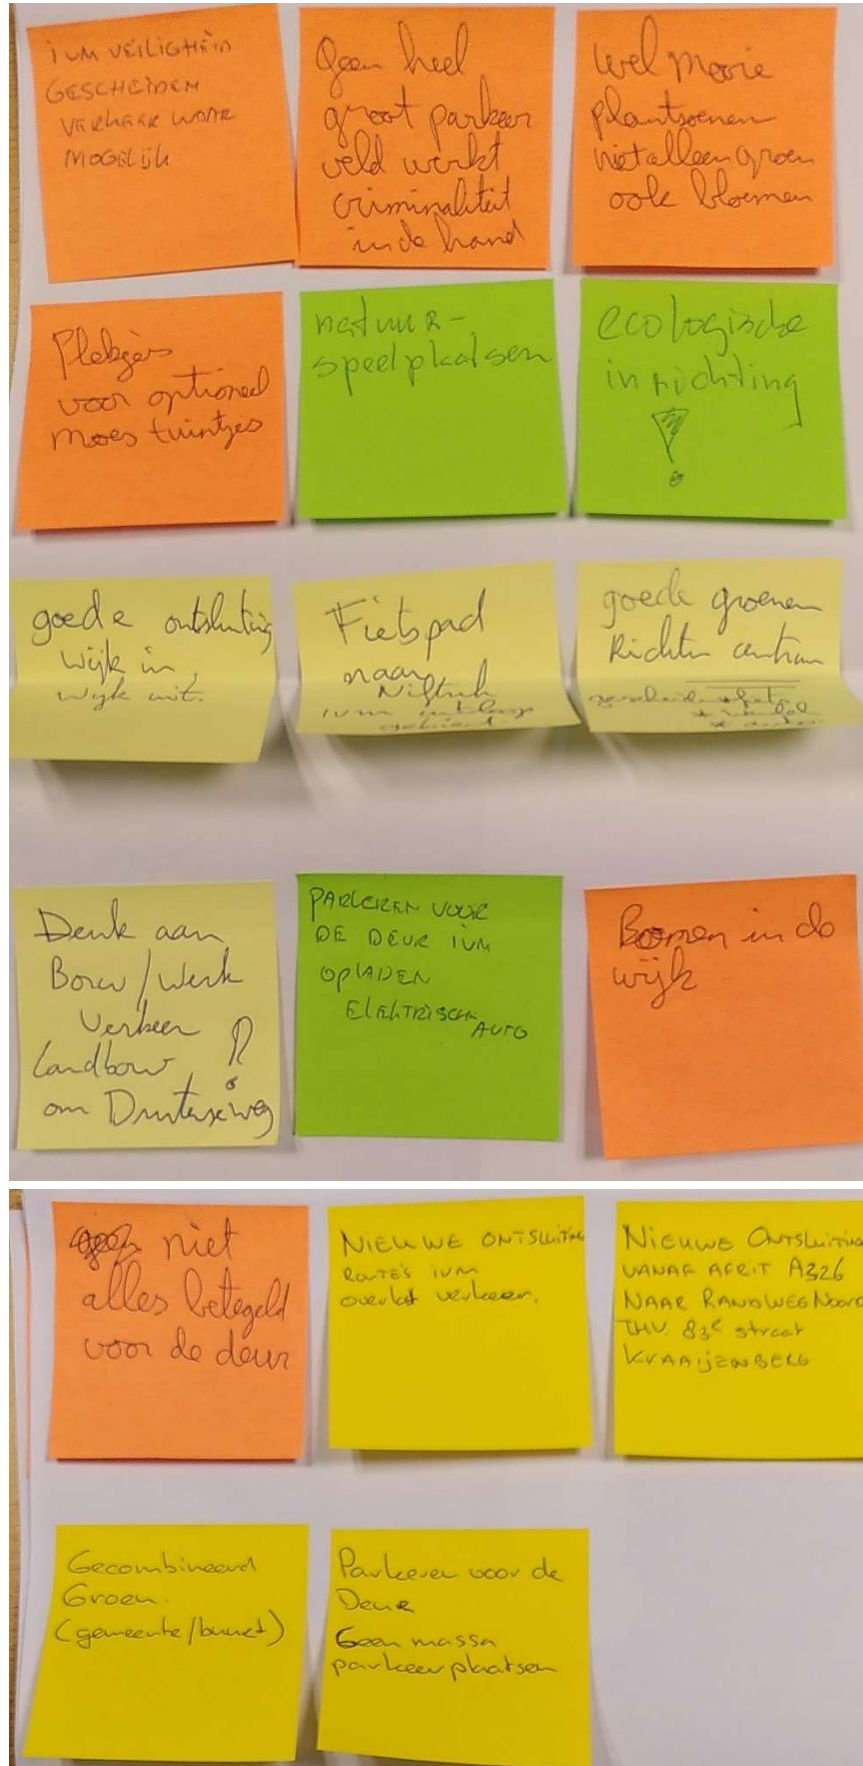 IVM VEILIGHEID
GESCHEIDEN
VERKEER WAAR
MOGELIJK
Geen heel
groot parkeer
veld werkt
criminaliteit
in de hand
wel mooie
plantsoenen
niet alleen groen
ook bloemen
Plekjes
voor optioneel
moes tuintjes
natuur-
speelplaatsen
ecologische
inrichting
!
goede ontsluiting
wijk in,
wijk uit.
Fietspad
naar
Niftrik
ivm
goede groenen
Richten centrum
Denk aan
Bouw/Werk
Verkeer
Landbouw !
om Drutenseweg
PARKEREN VOOR
DE DEUR IVM
OPLADEN
ELEKTRISCH
AUTO
Bomen in de
wijk
niet
alles betegeld
voor de deur
NIEUWE ONTSLUITING
ROUTE'S IVM
overlast verkeer.
NIEUWE ONTSLUITING
VANAF AFRIT A326
NAAR RANDWEG Noord
THV 83e straat
KRAAIJENBERG
Gecombineerd
Groen.
(gemeente/buurt)
Parkeren voor de
Deur
Geen massa
parkeerplaatsen